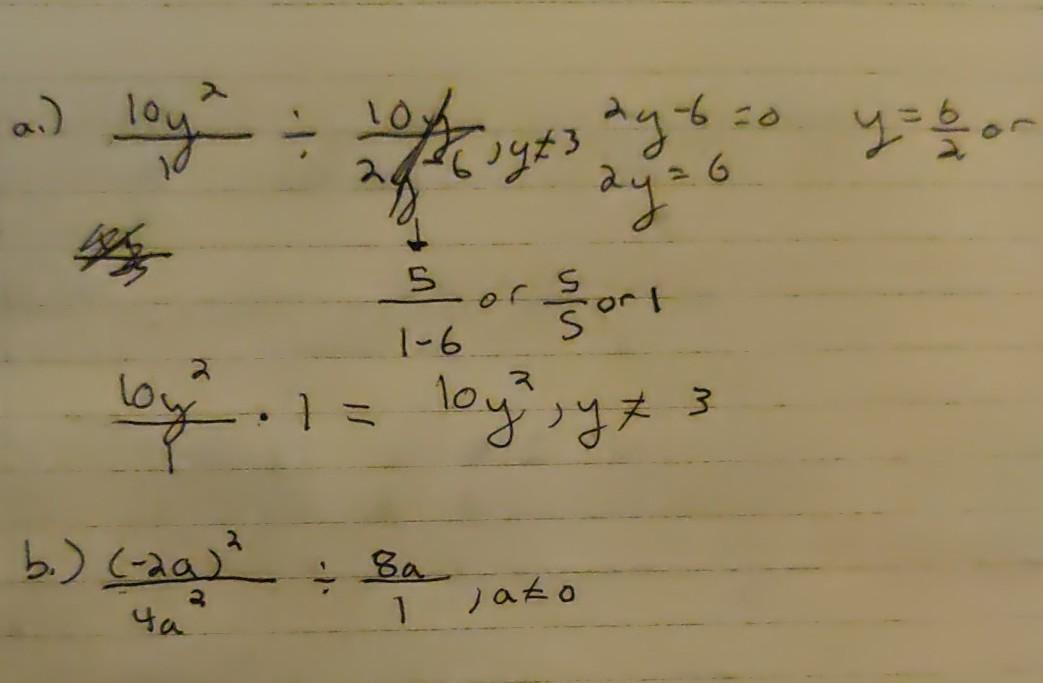 a.) 10y²/1 ÷ 10y/2y-6, y≠3 2y-6=0 y=6/2 or
2y=6
5/1-6 or 5/5 or 1
10y²/1 · 1 = 10y², y≠ 3
b.) (-2a)²/4a² ÷ 8a/1, a≠0